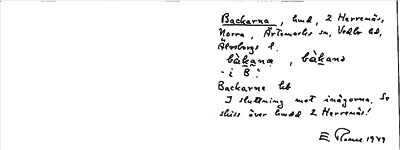 Backarna, hmd, 2 Herrenäs,
Norra, Ärtemarks sn, Vedbo hd,
Älvsborgs l.
bàkana, bàkanə
"i B".
Backarne hb
I sluttning mot inägorna. Se
skiss över hmdd 2 Herrenäs!
E 1949